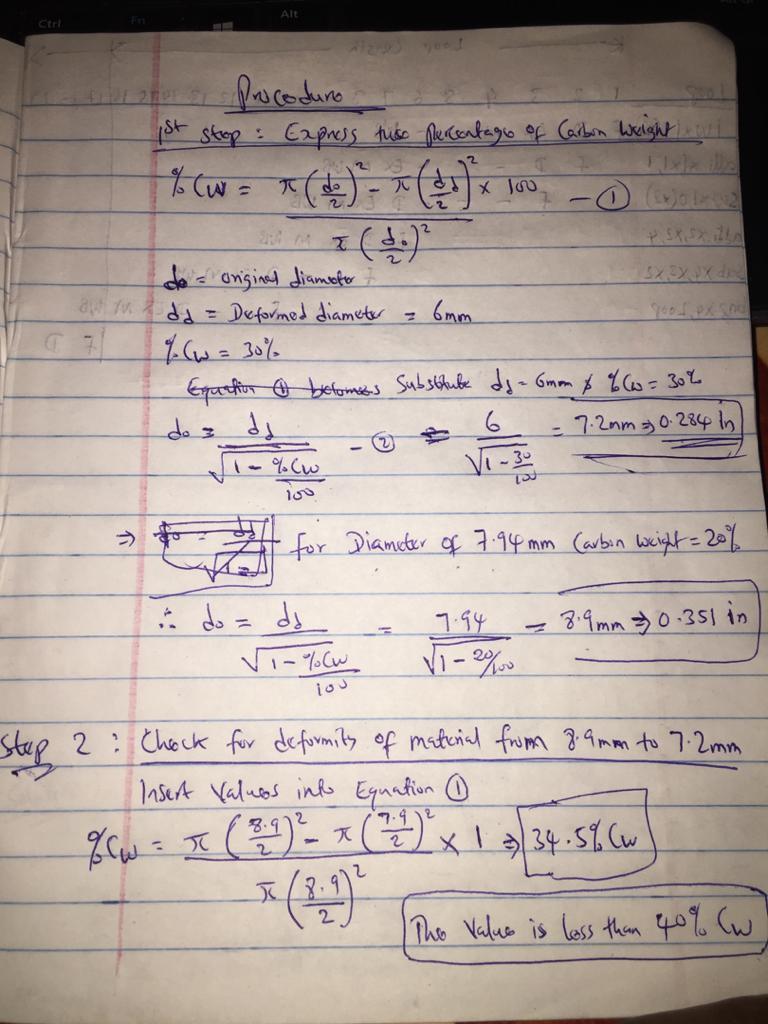 Ctrl
Fn
Alt
Procedure
1st step : Express the Percentage of Carbon Weight
% CW = π (do/2)² - π (dd/2)² × 100 / π (do/2)² - ①
do = original diameter
dd = Deformed diameter = 6mm
% CW = 30%
Equation ① becomes Substitute dd = 6mm & % CW = 30%
do = dd / √(1 - %CW/100) - ② = 6 / √(1 - 30/100) = 7.2mm ⇒ 0.284 in
⇒ for Diameter of 7.94mm Carbon weight = 20%
∴ do = dd / √(1 - %CW/100) = 7.94 / √(1 - 20/100) = 8.9mm ⇒ 0.351 in
Step 2 : Check for deformity of material from 8.9mm to 7.2mm
Insert Values into Equation ①
% CW = π (8.9/2)² - π (7.9/2)² × 1 / π (8.9/2)² ⇒ 34.5% CW
The Value is less than 40% CW